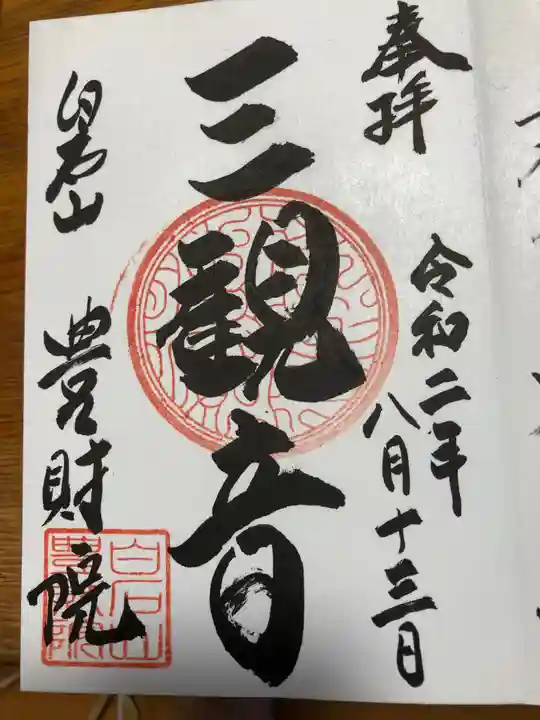 奉拝
令和二年
八月十三日
三観音
白石山
豊財院
白石山
豊財院